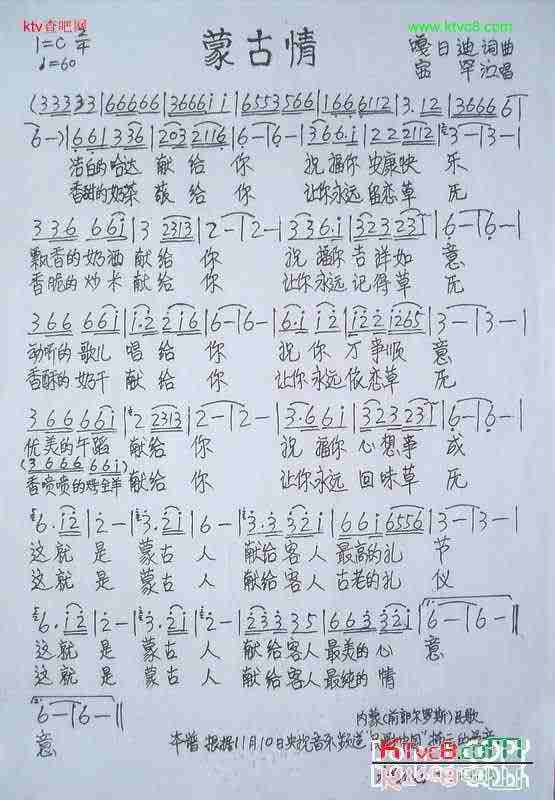 ktv查吧网
www.ktvc8.com
蒙古情
1=C 2/4
♩=60
嘎日迪 词曲
演唱
(33333|66666|3666ii|6553566|1666112|3.12|3666 6i
6-)|661336|2032116|6-|6-|336.i|222112|3-|3-|
洁白的哈达 献给 你 祝福你 安康快 乐
香甜的奶茶 献给 你 让你永远 留恋草 原
336 66i|3 2313|2-|2-|336.i|323 23i|6-|6-|
飘香的奶酒 献给 你 祝福你 吉祥如 意
香脆的炒米 献给 你 让你永远 记得草 原
366 66i|i.2 2i6|6-|6-|6.i i2|i22 i265|3-|3-|
动听的歌儿 唱给 你 祝你 万事顺 意
香酥的奶干 献给 你 让你永远 依恋草 原
3666 66i|2 2313|2-|2-|3.66i|323 23i|6-|6-|
优美的午蹈 献给 你 祝福你 心想事 成
(3 6666 66i)
香喷喷的烤全羊 献给 你 让你永远 回味草 原
6. i2|2-|3. 2i|6-|3.3 32i|66i 6556|3-|3-|
这就 是 蒙古 人 献给客人 最高的礼 节
这就 是 蒙古 人 献给客人 古老的礼 仪
6. i2|2-|3. 2i|2-|23335|663 32i|6-|6-||
这就 是 蒙古 人 献给客人 最美的心 意
这就 是 蒙古 人 献给客人 最纯的 情
6-|6-||
意
内蒙(前郭尔罗斯)民歌
李谱 根据11月10日央视音乐频道
KTvc8.com